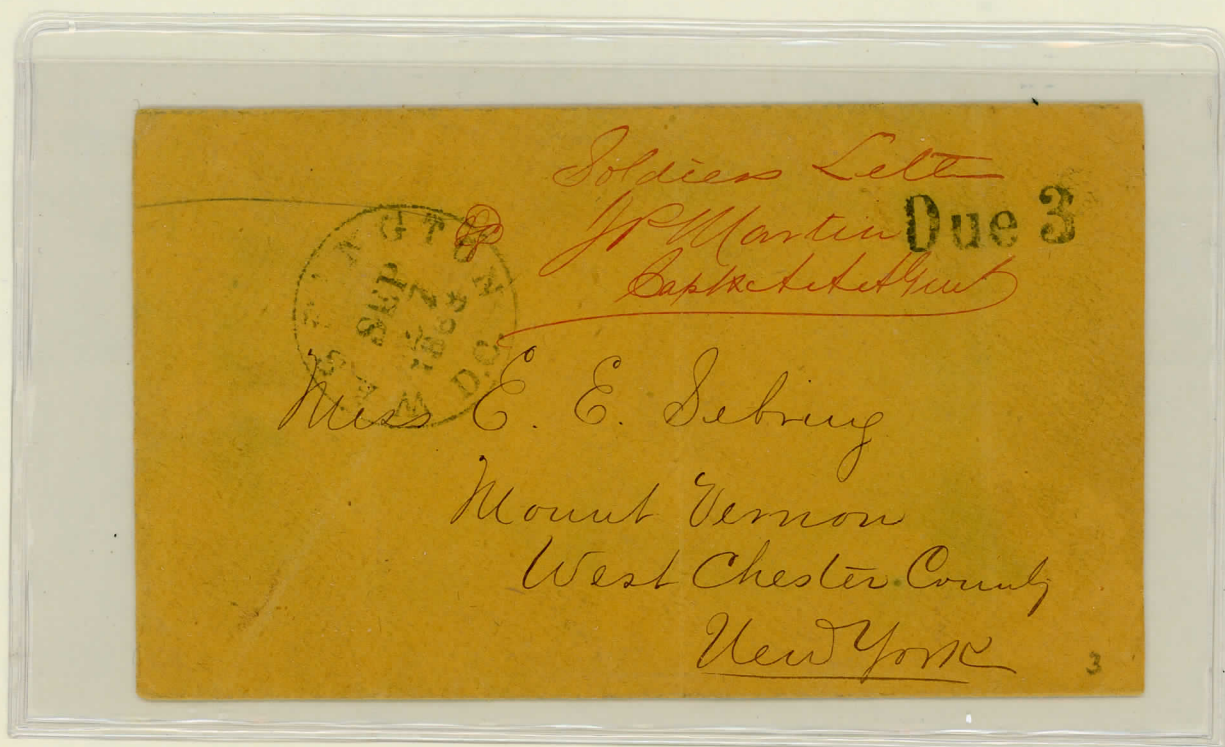 Soldiers Letter
J P Martin
Due 3
Capt & A A A Genl
WASHINGTON D.C.
SEP
7
1863
Miss E. E. Sebring
Mount Vernon
West Chester County
New York
3